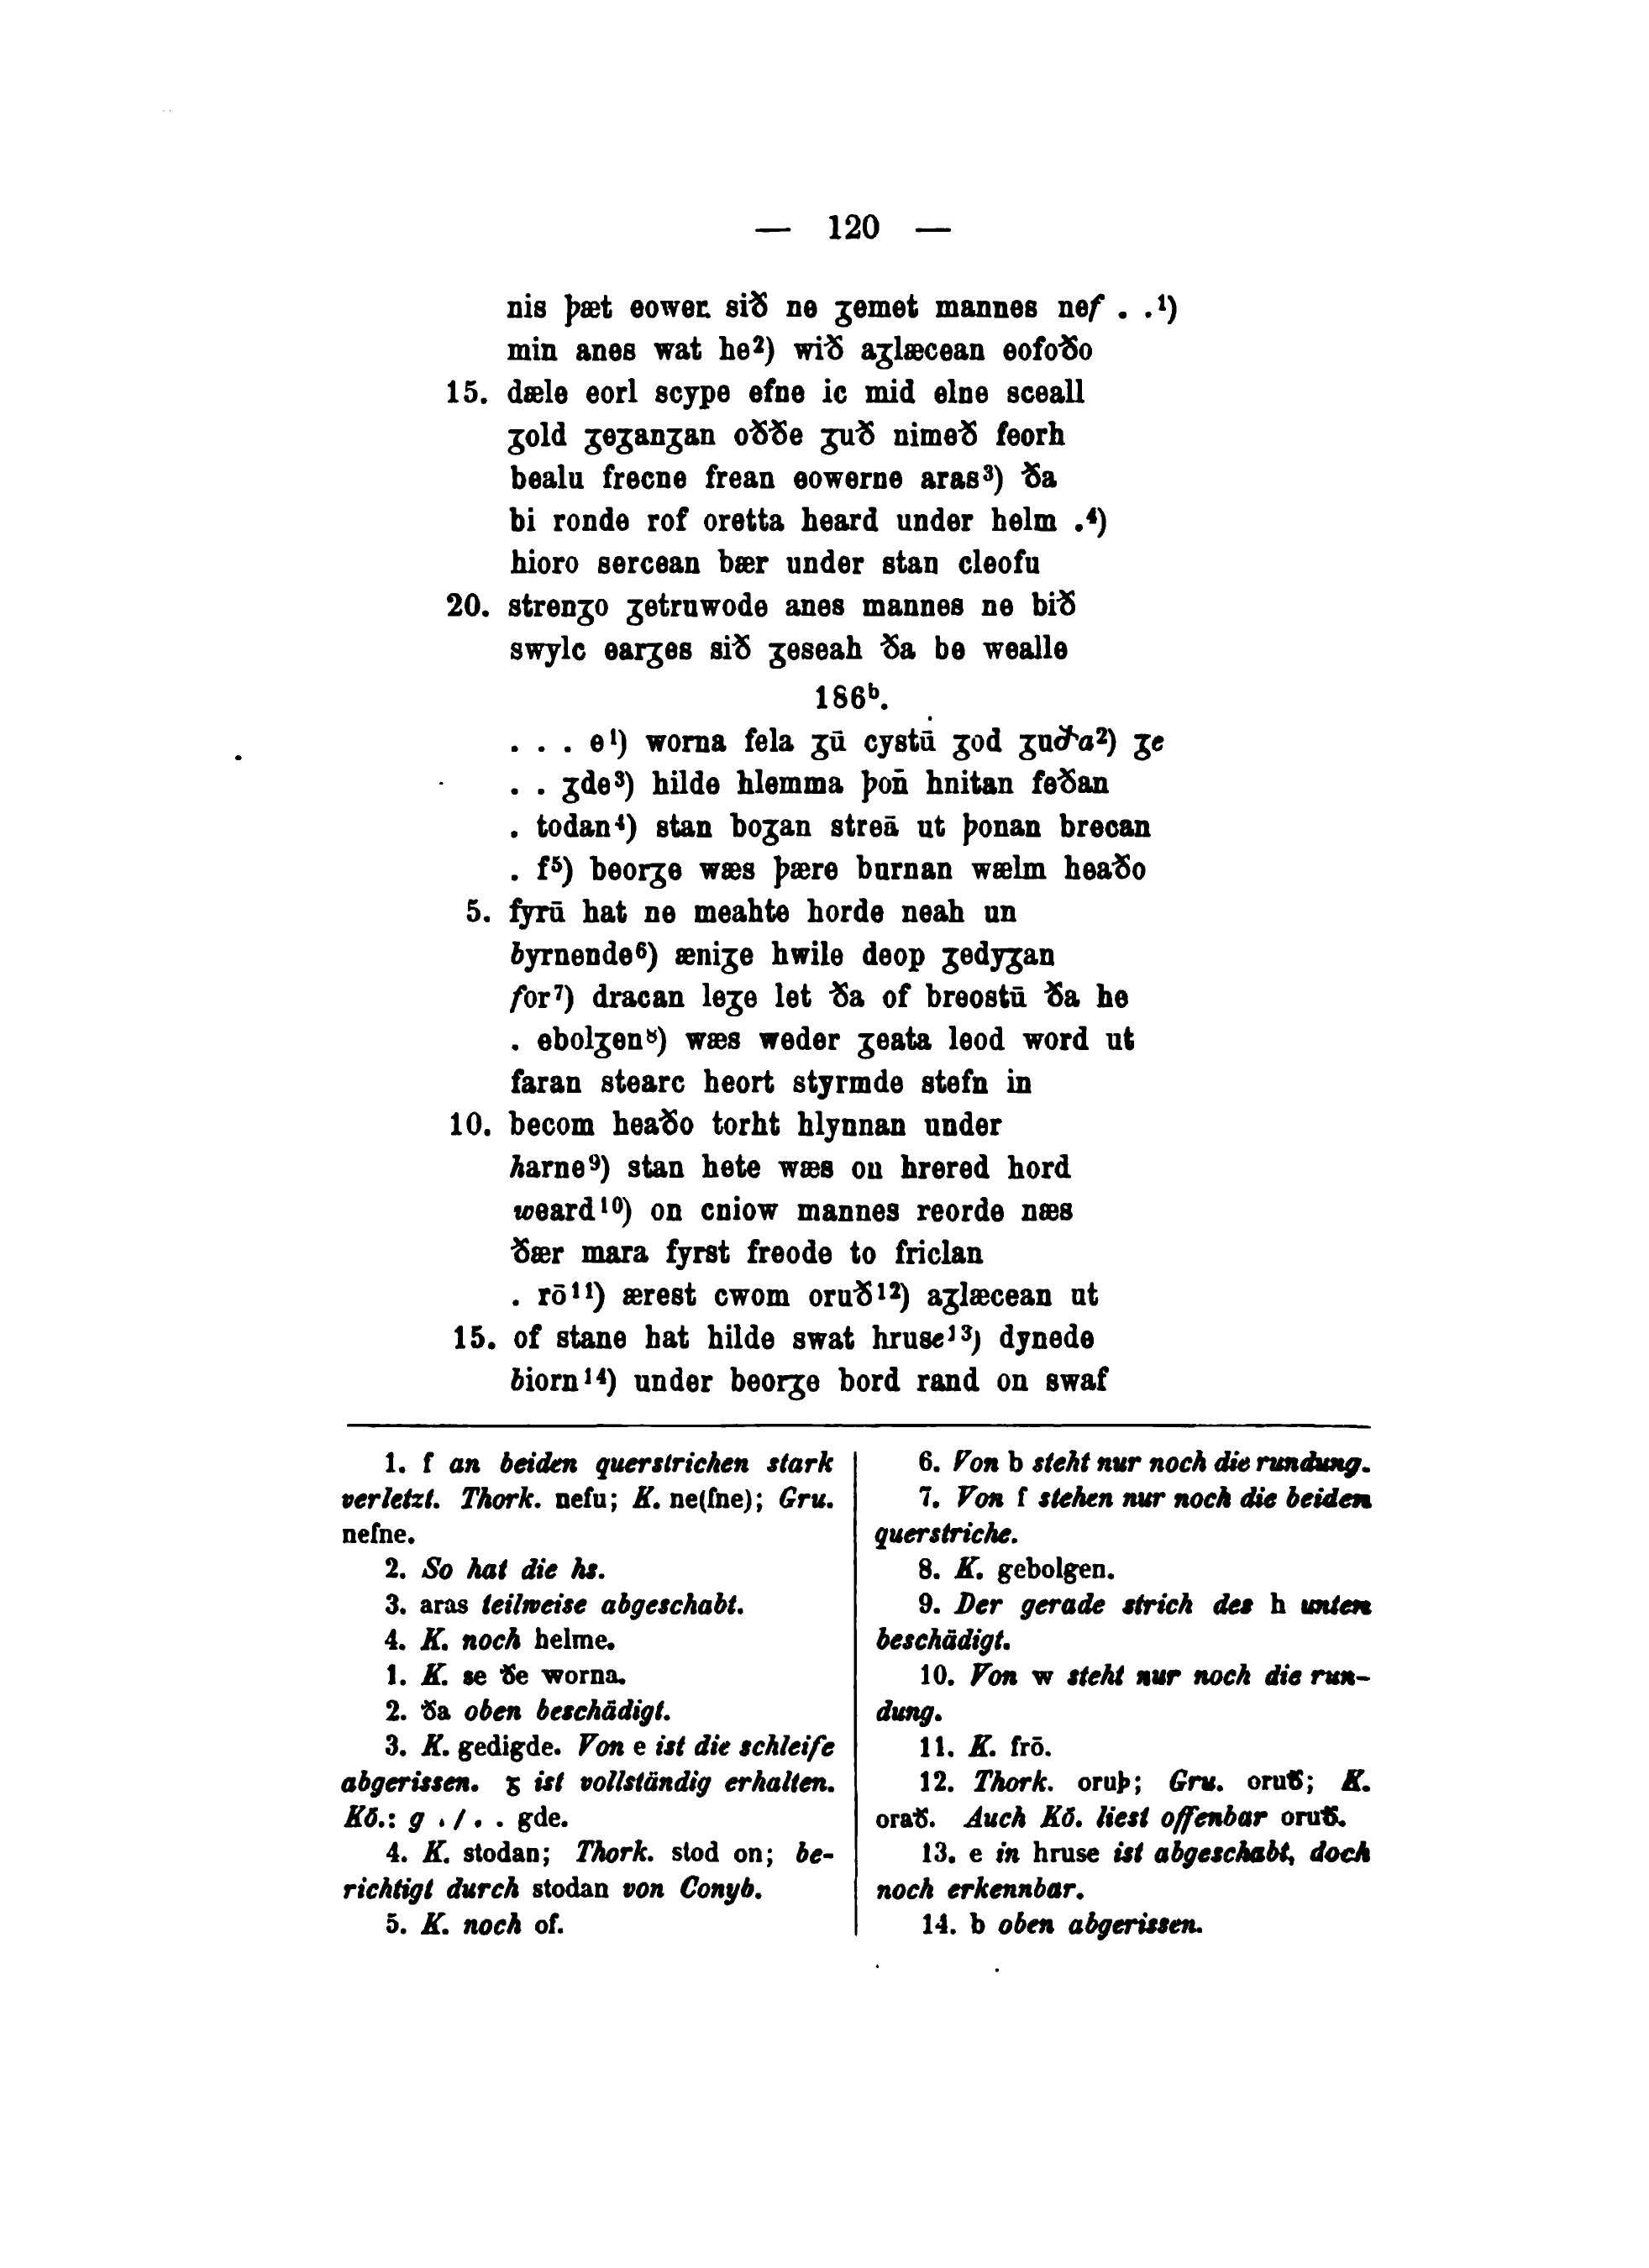 — 120 —
nis þæt eower sið ne ʒemet mannes nef . .¹)
min anes wat he²) wið aʒlæcean eofoðo
15. dæle eorl scype efne ic mid elne sceall
ʒold ʒeʒanʒan oððe ʒuð nimeð feorh
bealu frecne frean eowerne aras³) ða
bi ronde rof oretta heard under helm .⁴)
hioro sercean bær under stan cleofu
20. strenʒo ʒetruwode anes mannes ne bið
swylc earʒes sið ʒeseah ða be wealle
186ᵇ.
. . . e¹) worna fela ʒū cystū ʒod ʒuða²) ʒe
. . ʒde³) hilde hlemma þon̄ hnitan feðan
. todan⁴) stan boʒan streā ut þonan brecan
. f⁵) beorʒe wæs þære burnan wælm heaðo
5. fyrū hat ne meahte horde neah un
byrnende⁶) æniʒe hwile deop ʒedyʒan
for⁷) dracan leʒe let ða of breostū ða he
. ebolʒen⁸) wæs weder ʒeata leod word ut
faran stearc heort styrmde stefn in
10. becom heaðo torht hlynnan under
harne⁹) stan hete wæs on hrered hord
weard¹⁰) on cniow mannes reorde næs
ðær mara fyrst freode to friclan
. rō¹¹) ærest cwom oruð¹²) aʒlæcean ut
15. of stane hat hilde swat hruse¹³) dynede
biorn¹⁴) under beorʒe bord rand on swaf
1. f an beiden querstrichen stark
verletzt. Thork. nefu; K. ne(fne); Gru.
nefne.
2. So hat die hs.
3. aras teilweise abgeschabt.
4. K. noch helme.
1. K. se ðe worna.
2. ða oben beschädigt.
3. K. gedigde. Von e ist die schleife
abgerissen. ʒ ist vollständig erhalten.
Kö.: g . / . . gde.
4. K. stodan; Thork. stod on; be-
richtigt durch stodan von Conyb.
5. K. noch of.
6. Von b steht nur noch die rundung.
7. Von f stehen nur noch die beiden
querstriche.
8. K. gebolgen.
9. Der gerade strich des h unten
beschädigt.
10. Von w steht nur noch die run-
dung.
11. K. frō.
12. Thork. oruþ; Gru. oruð; K.
orað. Auch Kö. liest offenbar oruð.
13. e in hruse ist abgeschabt, doch
noch erkennbar.
14. b oben abgerissen.